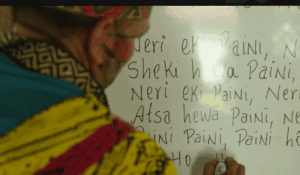 Neri eki Paini, N
Sheki h a Paini,
Neri eki Paini, Neri
Atsa hewa Paini, Ne
ini Paini, Paini h
Ho